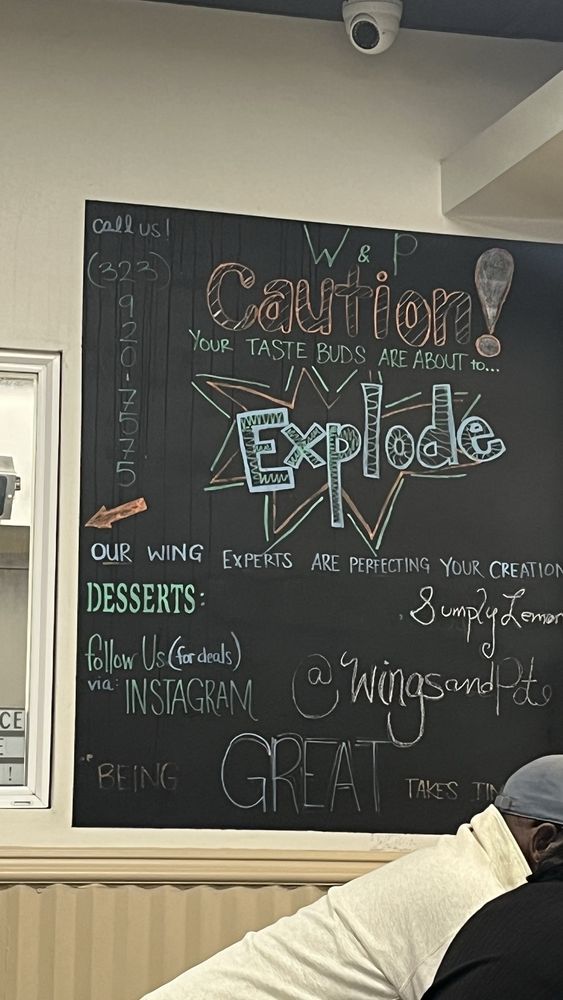 call us!
(323)
920-7575
W & P
Caution!
YOUR TASTE BUDS ARE ABOUT to...
Explode
OUR WING EXPERTS ARE PERFECTING YOUR CREATION
DESSERTS:
SumplyLemon
follow Us (for deals)
via: INSTAGRAM
@WingsandPote
"BEING GREAT TAKES TIM
CE
E
!